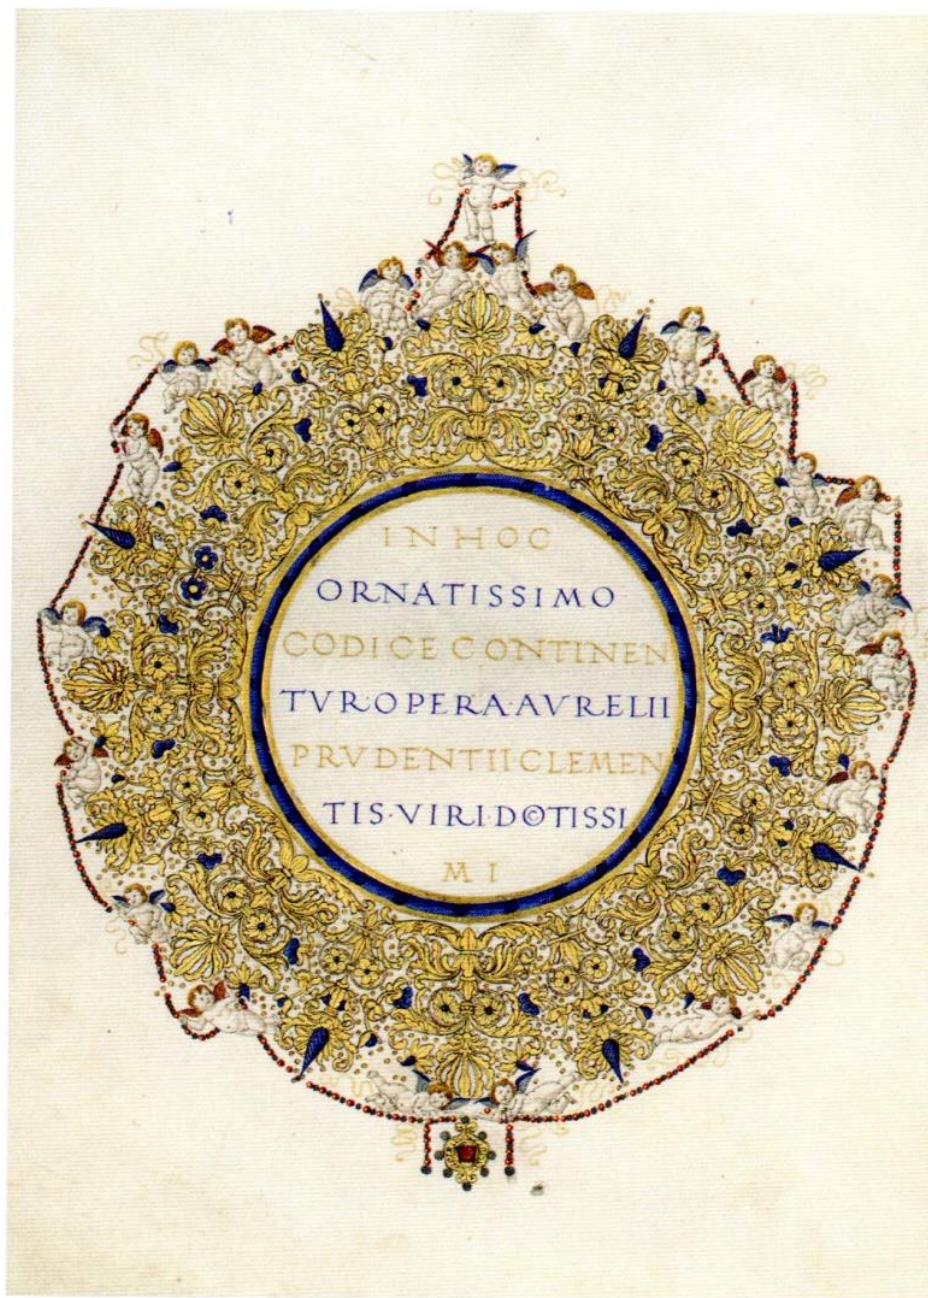 IN HOC
ORNATISSIMO
CODICE CONTINEN
TVR·OPERA·AVRELII
PRVDENTII CLEMEN
TIS·VIRI·DOCTISSI
MI